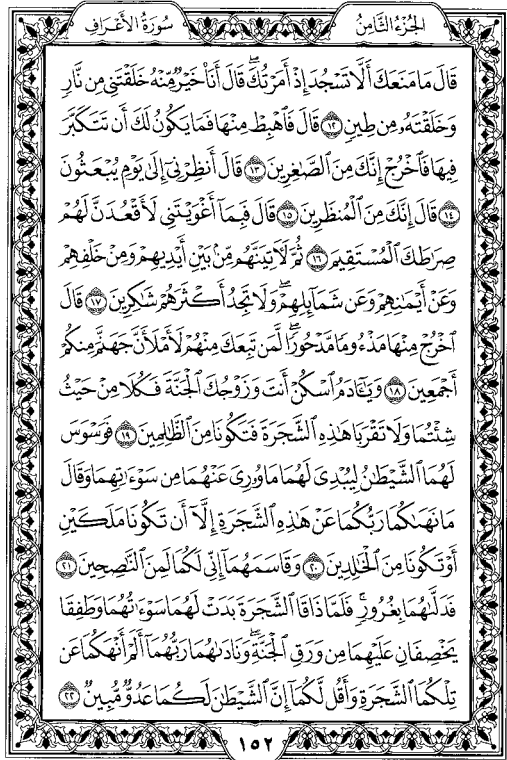 الجزء الثامن
سورة الأعراف
قَالَ مَا مَنَعَكَ أَلَّا تَسْجُدَ إِذْ أَمَرْتُكَ ۖ قَالَ أَنَا۠ خَيْرٌ مِّنْهُ خَلَقْتَنِى مِن نَّارٍ
وَخَلَقْتَهُۥ مِن طِينٍ ١٢ قَالَ فَٱهْبِطْ مِنْهَا فَمَا يَكُونُ لَكَ أَن تَتَكَبَّرَ
فِيهَا فَٱخْرُجْ إِنَّكَ مِنَ ٱلصَّـٰغِرِينَ ١٣ قَالَ أَنظِرْنِىٓ إِلَىٰ يَوْمِ يُبْعَثُونَ
١٤ قَالَ إِنَّكَ مِنَ ٱلْمُنظَرِينَ ١٥ قَالَ فَبِمَآ أَغْوَيْتَنِى لَأَقْعُدَنَّ لَهُمْ
صِرَٰطَكَ ٱلْمُسْتَقِيمَ ١٦ ثُمَّ لَـَٔاتِيَنَّهُم مِّنۢ بَيْنِ أَيْدِيهِمْ وَمِنْ خَلْفِهِمْ
وَعَنْ أَيْمَـٰنِهِمْ وَعَن شَمَآئِلِهِمْ ۖ وَلَا تَجِدُ أَكْثَرَهُمْ شَـٰكِرِينَ ١٧ قَالَ
ٱخْرُجْ مِنْهَا مَذْءُومًا مَّدْحُورًا ۖ لَّمَن تَبِعَكَ مِنْهُمْ لَأَمْلَأَنَّ جَهَنَّمَ مِنكُمْ
أَجْمَعِينَ ١٨ وَيَـٰٓـَٔادَمُ ٱسْكُنْ أَنتَ وَزَوْجُكَ ٱلْجَنَّةَ فَكُلَا مِنْ حَيْثُ
شِئْتُمَا وَلَا تَقْرَبَا هَـٰذِهِ ٱلشَّجَرَةَ فَتَكُونَا مِنَ ٱلظَّـٰلِمِينَ ١٩ فَوَسْوَسَ
لَهُمَا ٱلشَّيْطَـٰنُ لِيُبْدِىَ لَهُمَا مَا وُۥرِىَ عَنْهُمَا مِن سَوْءَٰتِهِمَا وَقَالَ
مَا نَهَىٰكُمَا رَبُّكُمَا عَنْ هَـٰذِهِ ٱلشَّجَرَةِ إِلَّآ أَن تَكُونَا مَلَكَيْنِ
أَوْ تَكُونَا مِنَ ٱلْخَـٰلِدِينَ ٢٠ وَقَاسَمَهُمَآ إِنِّى لَكُمَا لَمِنَ ٱلنَّـٰصِحِينَ ٢١
فَدَلَّىٰهُمَا بِغُرُورٍ ۚ فَلَمَّا ذَاقَا ٱلشَّجَرَةَ بَدَتْ لَهُمَا سَوْءَٰتُهُمَا وَطَفِقَا
يَخْصِفَانِ عَلَيْهِمَا مِن وَرَقِ ٱلْجَنَّةِ ۖ وَنَادَىٰهُمَا رَبُّهُمَآ أَلَمْ أَنْهَكُمَا عَن
تِلْكُمَا ٱلشَّجَرَةِ وَأَقُل لَّكُمَآ إِنَّ ٱلشَّيْطَـٰنَ لَكُمَا عَدُوٌّ مُّبِينٌ ٢٢
١٥٢